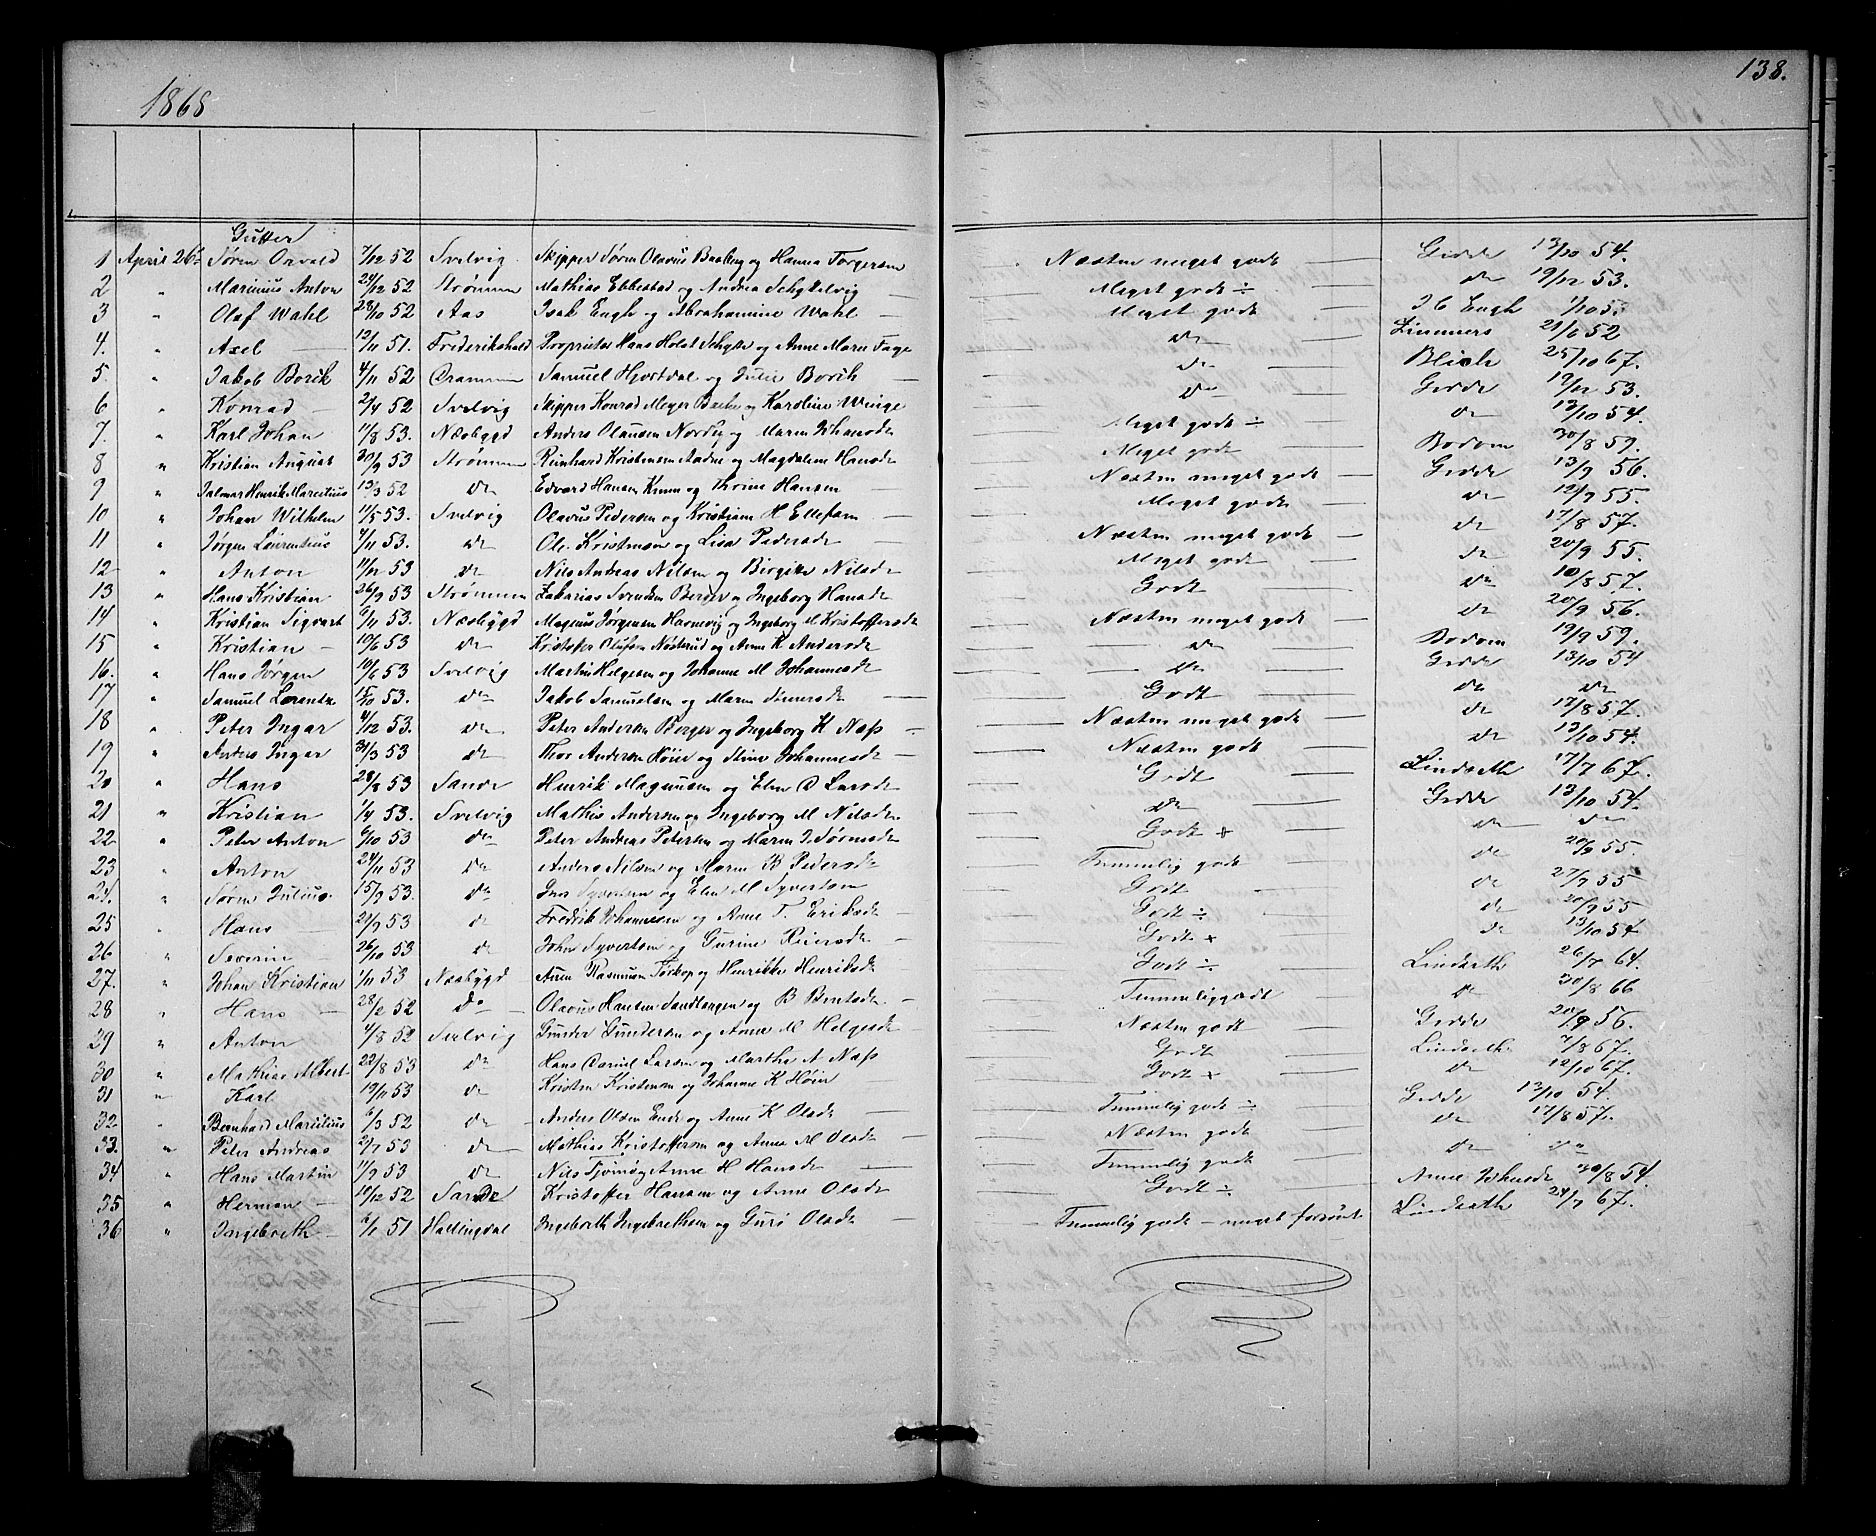 138.
1868
Gutter
1 April 26 Søren Osvald 7/12 52 Svelvig Skipper Søren Olavus Baaberg og Hanna Torgersen — Næsten meget godt — Gedde 13/10 54.
2 " Marinius Anton 24/12 52 Strømmen Mathias Ebbestad og Andrea Schykelvig — Meget godt ÷ — do 19/12 53.
3 " Olaf Wahl 28/10 52 Aas Isak Engh og Abrahamine Wahl — Meget godt — Engh 1/10 5
4. " Axel 12/11 51. Frederikshald Proprietær Hans Holst Schytte og Anne Marie Fage — do — 21/6 52
5. " Jakob Borik 4/11 52 Drammen Samuel Hjortdal og Borik — do — Blich 25/10 67.
6 " Konrad — 2/4 52 Svelvig Skipper Konrad Meyer og Karoline Winge — do — Gedde 19/12 53.
7. " Karl Johan 11/8 53. Næsbygd Anders Olausen Nordby og Maren Johansdt — Meget godt ÷ — do 13/10 54.
8 " Kristian August 30/9 53 Strømmen Reinhard Kristensen og Magdalene Hansdt — Meget godt — Bodom 30/8 59.
9 " Jalmar Henrik Marcelius 13/3 52 do Edvard Hansen og Thrine Hansen — Næsten meget godt — Gedde 13/9 56.
10 " Johan Wilhelm 11/5 53. Svelvig Olavus Pedersen og Kristiane H Ellefsen — Meget godt — do 12/9 55
11 " Jørgen Laurentius 4/11 53. do Ole Kristensen og Lisa Pedersdt — Næsten meget godt — do 17/8 57.
12 " Anton 11/12 53 do Nils Andreas Nilsen og Birgitte Nilsdt — Meget godt — do 20/9 55.
13 " Hans Kristian 26/9 53 Strømmen Zakarias Svendsen Berger og Ingeborg Hansdt — Godt — do 10/8 57.
14 " Kristian Sigvart 6/11 53. Næsbygd Magnus Jørgensen Havnevig og Ingeborg M Kristoffersdt — Næsten meget godt — do 20/9 56.
15 " Kristian — 10/6 53 do Kristofer Olufsen Nøsterud og Anne K Andersdt — do — Bodom 19/9 59.
16. " Hans Jørgen 10/6 53 Svelvig Martin Helgesen og Johanne M Johannesdt — do — Gedde 13/10 54
17 " Samuel Lorentz 15/10 53. do Jakob Samuelsen og Maren — Godt — do do
18 " Peter Ingar 4/12 53. do Peter Andersen Berger og Ingeborg K Næss — Næsten meget godt — do 17/8 57.
19 " Anders Ingar 31/3 53 do Thor Andersen Høier og Stine Johannesdt — Næsten godt — do 13/10 54.
20 " Hans 28/8 53 Sande Henrik Magnussen og Elen O Larsdt — Godt — Lindseth 17/7 67.
21 " Kristian 1/4 53. Svelvig Mathis Andersen og Ingeborg M Nilsdt — do — Gedde 13/10 54.
22 " Peter Anton 6/10 53 do Peter Andreas Petersen og Maren J Sørensdt — Godt + — do do
23 " Anton 24/11 53 do Anders Nilsen og Maren B Pedersdt — Temmelig godt — do 20/9 55.
24. " Søren Julius. 15/9 53. do Syvertsen og Elen M Syvertsen — Godt — do 27/9 55
25 " Hans — 21/9 53 do Fredrik Johannesen og Anne T. Eriksdt — Godt ÷ — do 20/9 55
26 " Severin — 26/10 53 do John Syvertsen og Gurine Reiersdt — Godt + — do 13/10 54
27. " Johan Kristian 1/11 53 Næsbygd Rasmusen Torkop og Henrikke Henriksdt — Godt ÷ — Lindseth 26/7 64.
28 " Hans — 28/2 52 do Olavus Hansen Sandtangen og B Bentsdt — Temmelig godt — do 30/8 66
29 " Anton 4/8 52 Svelvig Gunder Gundersen og Anne M Helgesdt — Næsten godt — Gedde 20/9 56.
30 " Mathias Albert 22/8 53 do Hans Daniel Larsen og Marthe A Næss — Godt — Lindseth 7/8 67.
31 " Karl 19/11 53 do Kristen Kristensen og Johanne K Høier — Godt + — do 12/10 67.
32 " Bernhard Marcelius 6/3 52 do Anders Olsen Ende og Anne K Olsdt — Temmelig godt ÷ — Gedde 13/10 54.
33. " Peter Andreas 2/7 53 do Mathias Kristoffersen og Anne M Olsdt — Næsten godt — do 17/8 57.
34 " Hans Martin 11/9 53 do Nils og Anne H Hansdt — Temmelig godt — do do
35 " Herman — 10/12 52 Sande Kristoffer Hansen og Anne Olsdt — Godt ÷ — Anne Johnsdt 30/8 54.
36 " Ingebreth — 6/1 51 Hallingdal Ingebreth Ingebrethsen og Guri Olsdt — Temmelig godt — meget forsømt Lindseth 24/9 67.